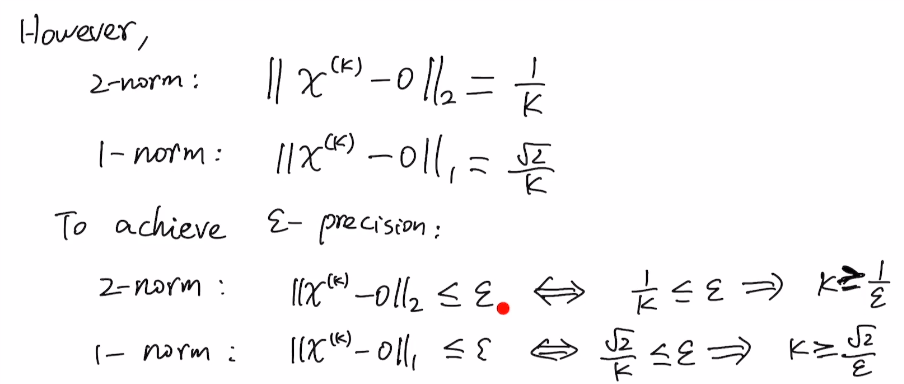 However,
2-norm: ‖ x^(K) − 0 ‖₂ = 1/K
1-norm: ‖ x^(K) − 0 ‖₁ = √2/K
To achieve ε- precision:
2-norm: ‖ x^(K) − 0 ‖₂ ≤ ε ⇔ 1/K ≤ ε ⇒ K ≥ 1/ε
1-norm: ‖ x^(K) − 0 ‖₁ ≤ ε ⇔ √2/K ≤ ε ⇒ K ≥ √2/ε